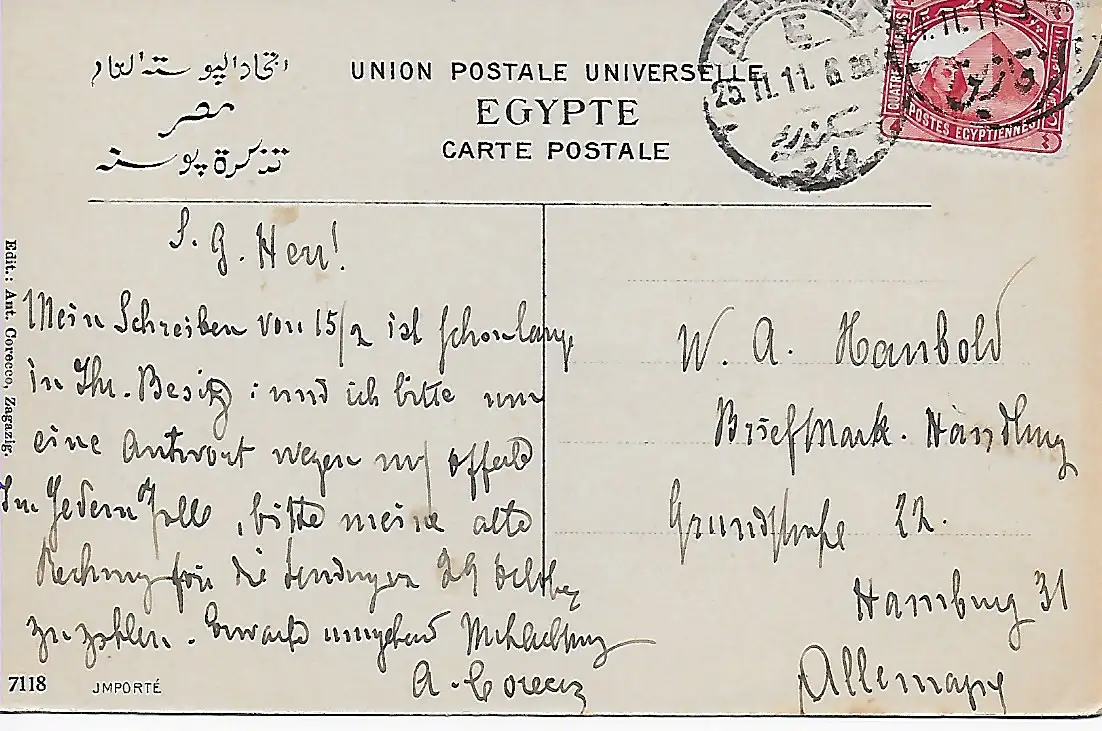 اتحاد البوسته العام
مصر
تذكرة بوسته
UNION POSTALE UNIVERSELLE
EGYPTE
CARTE POSTALE
E
25.11.11.6
POSTES EGYPTIENNES
Edit.: Ant. Corecco, Zagazig.
S. G. Herr!
Mein Schreiben von 15/2 ist schon lang
in Ihr. Besitz : und ich bitte um
eine Antwort wegen offerte
Im jedem Falle, bitte meine alte
Rechnung für die Sendungen 29
zu zahlen. Erwarte umgehend
A. Corecco
W. A. Haubold
Briefmark. Handlung
Grundstraße 22.
Hamburg 31
Allemagne
7118 IMPORTÉ